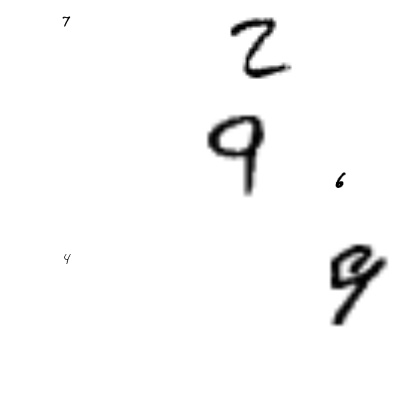 7 2
9
6
4 9